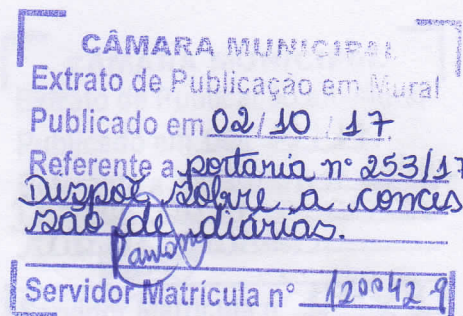 CÂMARA MUNICIPAL
Extrato de Publicação em Mural
Publicado em 02/10/17
Referente a portaria n° 253/17
Dispoe sobre a conces
são de diárias.
Servidor Matrícula n° 120042-9